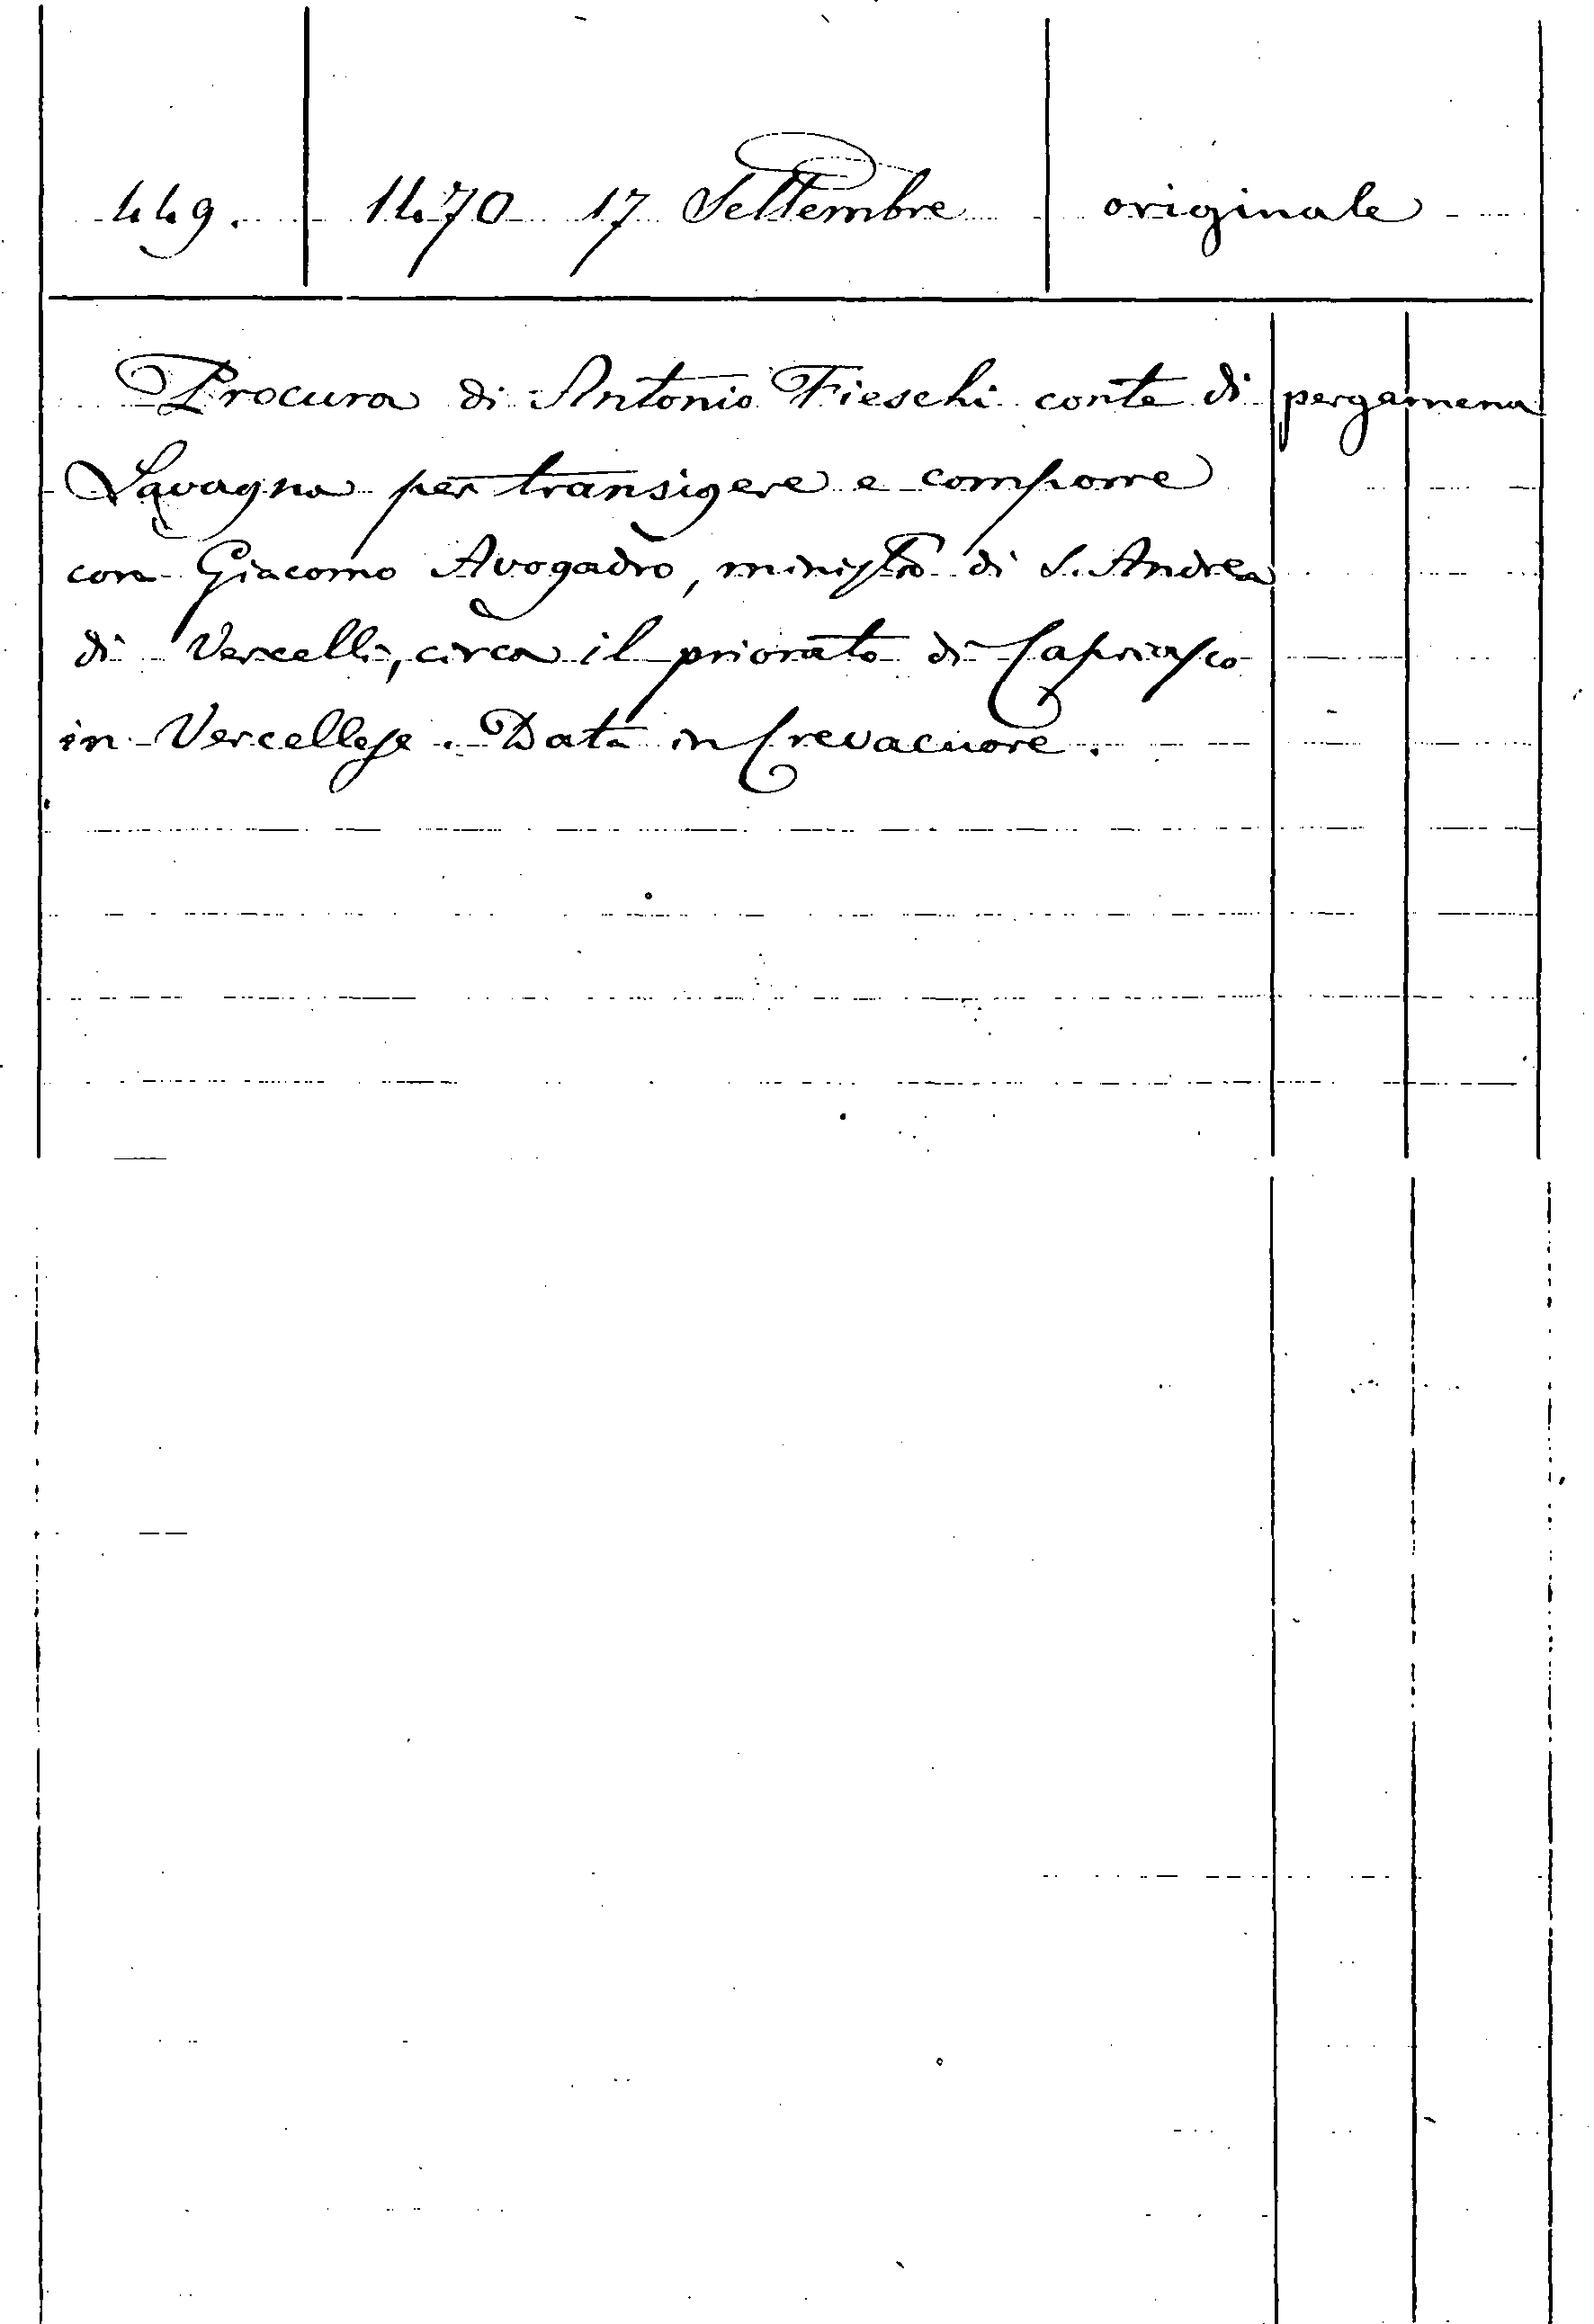 449. 1470 17 Settembre originale
Procura di Antonio Fieschi conte di pergamena
Lavagna per transigere e comporre
con Giacomo Avogadro, ministro di S. Andrea
di Vercelli, circa il priorato di Capriasco
in Vercellese. Data in Crevacuore.